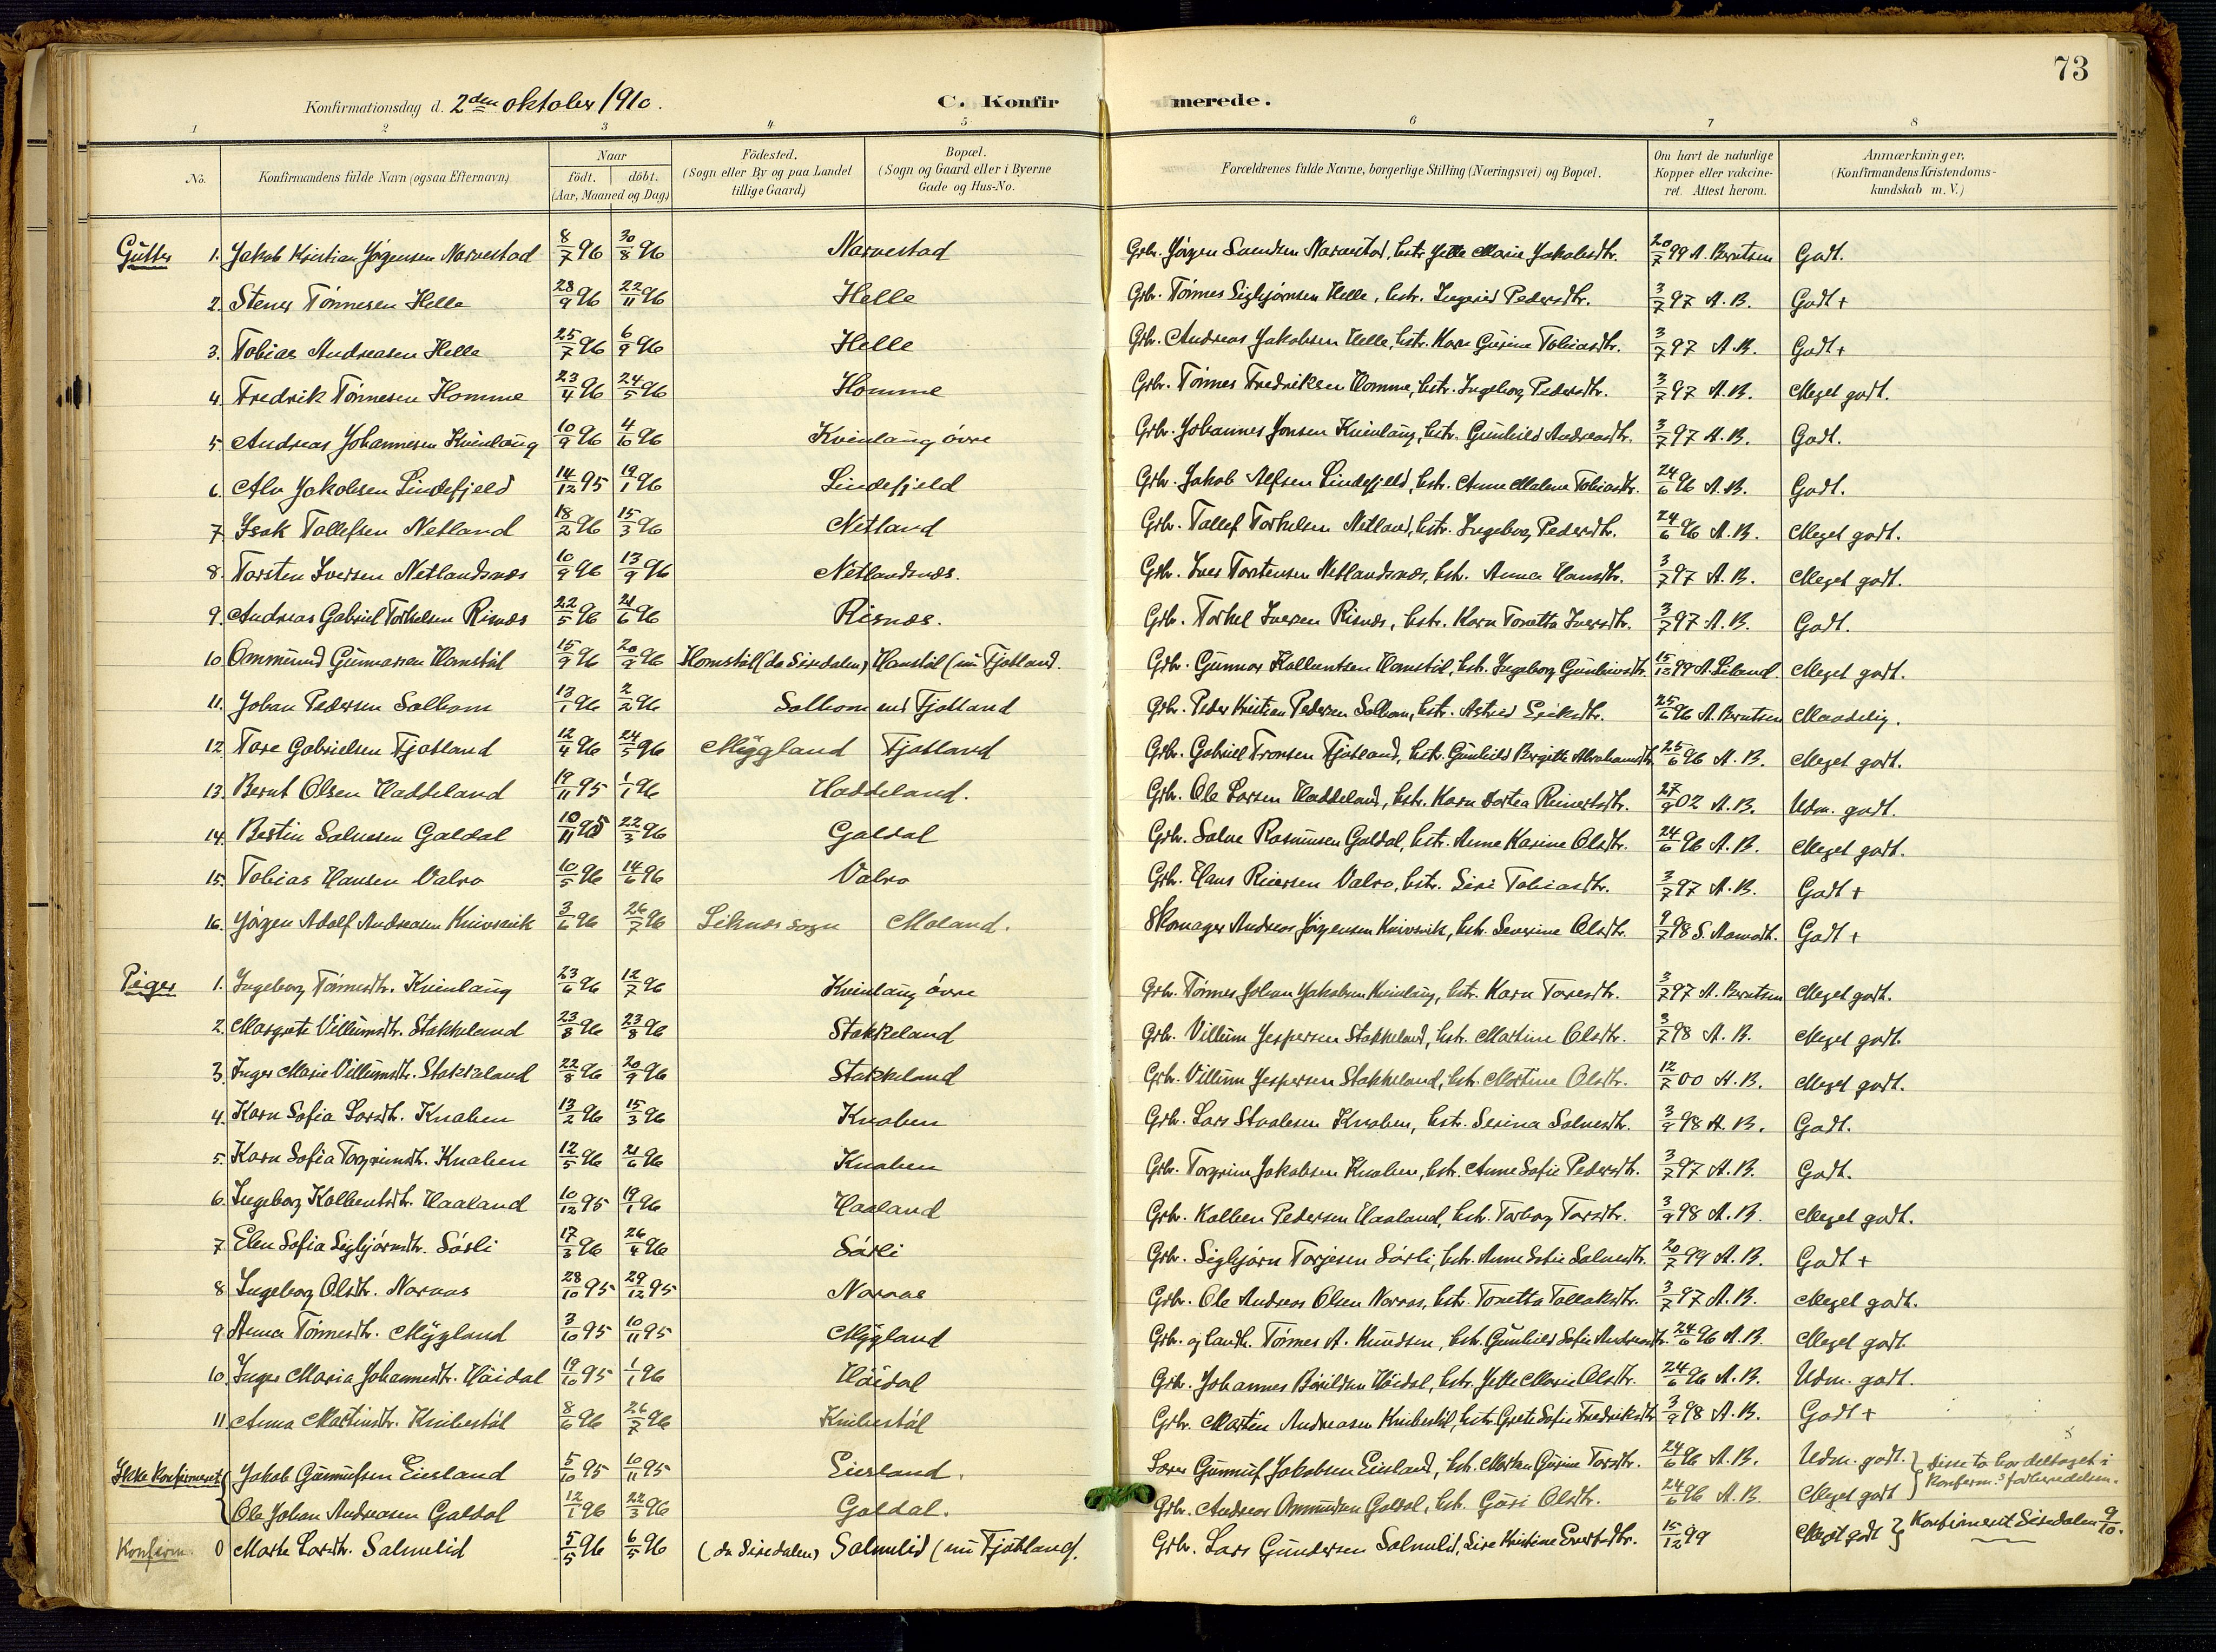 73
Konfirmationsdag d. 2den oktober 1910. C. Konfirmerede.
1 2 3 4 5 6 7 8
No. Konfirmandens fulde Navn (ogsaa Efternavn) Naar født. døbt. (Aar, Maaned og Dag) Födested. (Sogn eller By og paa Landet tillige Gaard) Bopæl. (Sogn og Gaard eller i Byerne Gade og Hus-No. Forældrenes fulde Navne, borgerlige Stilling (Næringsvei) og Bopæl. Om havt de naturlige Kopper eller vakcineret. Attest herom. Anmærkninger, (Konfirmandens Kristendomskundskab m. V.)
Gutter 1. Jakob Kristian Jørgensen Narvestad 8/7 96 30/8 96 Narvestad Grbr. Jørgen Samdsen Narvestad, hstr. Jelle Marie Jakobsdtr. 20/7 99 A. Berntsen Godt.
2. Stener Tønnesen Helle 28/9 96 22/11 96 Helle Grbr. Tønnes Sigbjørnsen Helle, hstr. Ingerid Pedersdtr. 3/7 97 A. B. Godt +
3. Tobias Andreasen Helle 25/7 96 6/9 96 Helle Grbr. Andreas Jakobsen Helle, hstr. Karn Gurine Tobiasdtr. 3/7 97 A. B. Godt +
4. Fredrik Tønnesen Homme 23/4 96 24/5 96 Homme Grbr. Tønnes Fredriksen Homme, hstr. Ingeborg Pedersdtr. 3/7 97 A. B. Meget godt.
5. Andreas Johannesen Kvinlaug 10/9 96 4/10 96 Kvinlaug øvre Grbr. Johannes Jonsen Kvinlaug, hstr. Gunhild Andreasdtr. 3/7 97 A. B. Godt.
6. Alv Jakobsen Lindefjeld 14/12 95 19/1 96 Lindefjeld Grbr. Jakob Alfsen Lindefjeld, hstr. Anne Malene Tobiasdtr. 24/6 96 A. B. Godt.
7. Isak Tollefsen Netland 18/2 96 15/3 96 Netland Grbr. Tollef Torkelsen Netland, hstr. Ingeborg Pedersdtr. 24/6 96 A. B. Meget godt.
8. Torsten Iversen Netlandsnæs 10/9 96 13/9 96 Netlandsnæs. Grbr. Iver Torstensen Netlandsnæs, hstr. Anna Hansdtr. 3/7 97 A. B. Meget godt.
9. Andreas Gabriel Torkelsen Risnæs 22/5 96 21/6 96 Risnæs. Grbr. Torkel Iversen Risnæs, hstr. Karn Tonetta Iversdtr. 3/7 97 A. B. Godt.
10 Ommund Gunnarsen Homstøl 15/9 96 20/9 96 Homstøl (da Siredalen) Homstøl (nu Fjotland. Grbr. Gunnar Kolbentsen Homstøl, hstr. Ingeborg Gunleivsdtr. 15/12 99 A. Liland Meget godt.
11. Johan Pedersen Solhom 13/1 96 2/2 96 Solhom end Fjotland Grbr. Peder Kristian Pedersen Solhom, hstr. Astrid Eriksdtr. 25/6 96 A. Berntsen Maadelig.
12 Tore Gabrielsen Fjotland 12/4 96 24/5 96 Myggland Fjotland Grbr. Gabriel Tronsen Fjotland, hstr. Gunhild Birgitte Abrahamsdtr 25/6 96 A. B. Meget godt.
13. Bernt Olsen Haddeland 19/11 95 1/1 96 Haddeland. Grbr. Ole Larsen Haddeland, hstr. Karn Dortea Reinertsdtr. 27/9 02 A. B. Udm. godt.
14. Bertin Salvesen Galdal 10/11 95 22/3 96 Galdal Grbr. Salve Rasmusen Galdal, hstr. Anne Karine Olsdtr. 24/6 96 A. B. Meget godt.
15. Tobias Hansen Valvo 10/5 96 14/6 96 Valvo Grbr. Hans Reiersen Valvo, hstr. Siri Tobiasdtr. 3/7 97 A. B. Godt +
16. Jørgen Adolf Andreasen Knivsvik 3/6 96 26/7 96 Liknes sogn Moland. Skomager Andreas Jørgensen Knivsvik, hstr. Severine Olsdtr. 9/7 98 S. Aamodt. Godt +
Piger 1. Ingeborg Tønnesdtr. Kvinlaug 23/6 96 12/7 96 Kvinlaug øvre Grbr. Tønnes Johan Jakobsen Kvinlaug, hstr. Karn Toresdtr. 3/7 97 A. Berntsen Meget godt.
2. Margrete Villumsdtr. Stakkeland 23/8 96 23/8 96 Stakkeland Grbr. Villum Jespersen Stakkeland, hstr. Martine Olsdtr. 3/7 98 A. B. Meget godt.
3. Inger Marie Villumsdtr. Stakkeland 22/8 96 20/9 96 Stakkeland Grbr. Villum Jespersen Stakkeland, hstr. Martine Olsdtr. 12/7 00 A. B. Meget godt.
4. Karn Sofia Larsdtr. Knaben 13/2 96 15/3 96 Knaben Grbr. Lars Staalesen Knaben, hstr. Serina Salvesdtr. 3/9 98 A. B. Godt.
5. Karn Sofia Torgrimsdtr. Knaben 12/5 96 21/6 96 Knaben Grbr. Torgrim Jakobsen Knaben, hstr. Anne Sofie Pedersdtr. 3/7 97 A. B. Godt.
6. Ingeborg Kolbentsdtr. Haaland 10/12 95 19/1 96 Haaland Grbr. Kolben Pedersen Haaland, hstr. Torborg Torsdtr. 3/9 98 A. B. Meget godt.
7. Elen Sofia Sigbjørnsdtr. Sørli 17/3 96 26/4 96 Sørli Grbr. Sigbjørn Torjesen Sørli, hstr. Anne Sofie Salvesdtr. 20/7 99 A. B. Godt +
8 Ingeborg Olsdtr. Narvas 28/10 95 29/12 95 Narvas Grbr. Ole Andreas Olsen Narvas, hstr. Tonetta Tollaksdtr. 3/7 97 A. B. Meget godt.
9. Anna Tønnesdtr. Myggland 3/10 95 10/11 95 Mygland Grbr. og Landh. Tønnes A. Knudsen, hstr. Gunhild Sofie Andreasdtr. 24/6 96 A. B. Meget godt.
10. Inger Maria Johannesdtr. Høidal 19/10 95 1/1 96 Høidal Grbr. Johannes Børildsen Høidal, hstr. Jelle Marie Olsdtr. 24/6 96 A. B. Udm. godt.
11 Anna Martinsdtr. Knibestøl 8/6 96 26/7 96 Knibestøl Grbr. Martin Andreasen Knibestøl, hstr. Grete Sofie Fredriksdtr 3/9 98 A. B. Godt +
Ikke konfirmeret Jakob Gunnufsen Eiesland 5/10 95 10/11 95 Eiesland. Lærer Gunnuf Jakobsen Eiesland, hstr. Marken Gurine Torsdtr. 24/6 96 A. B. Udm. godt. disse to har deltaget i
Ole Johan Andreasen Galdal 12/1 96 22/3 96 Galdal. Grbr. Andreas Ommundsen Galdal, hstr. Guri Olsdtr. 24/6 96 A. B. Meget godt konfirm.s forberedelsen.
Konfirm. 0 Marte Larsdtr. Salmelid 5/5 96 6/5 96 (da Siredalen) Salmelid (nu Fjotland). Grbr. Lars Gundersen Salmelid, Sire Kristine Evertsdtr. 15/12 99 Meget godt Konfirmeret Siredalen 9/10.